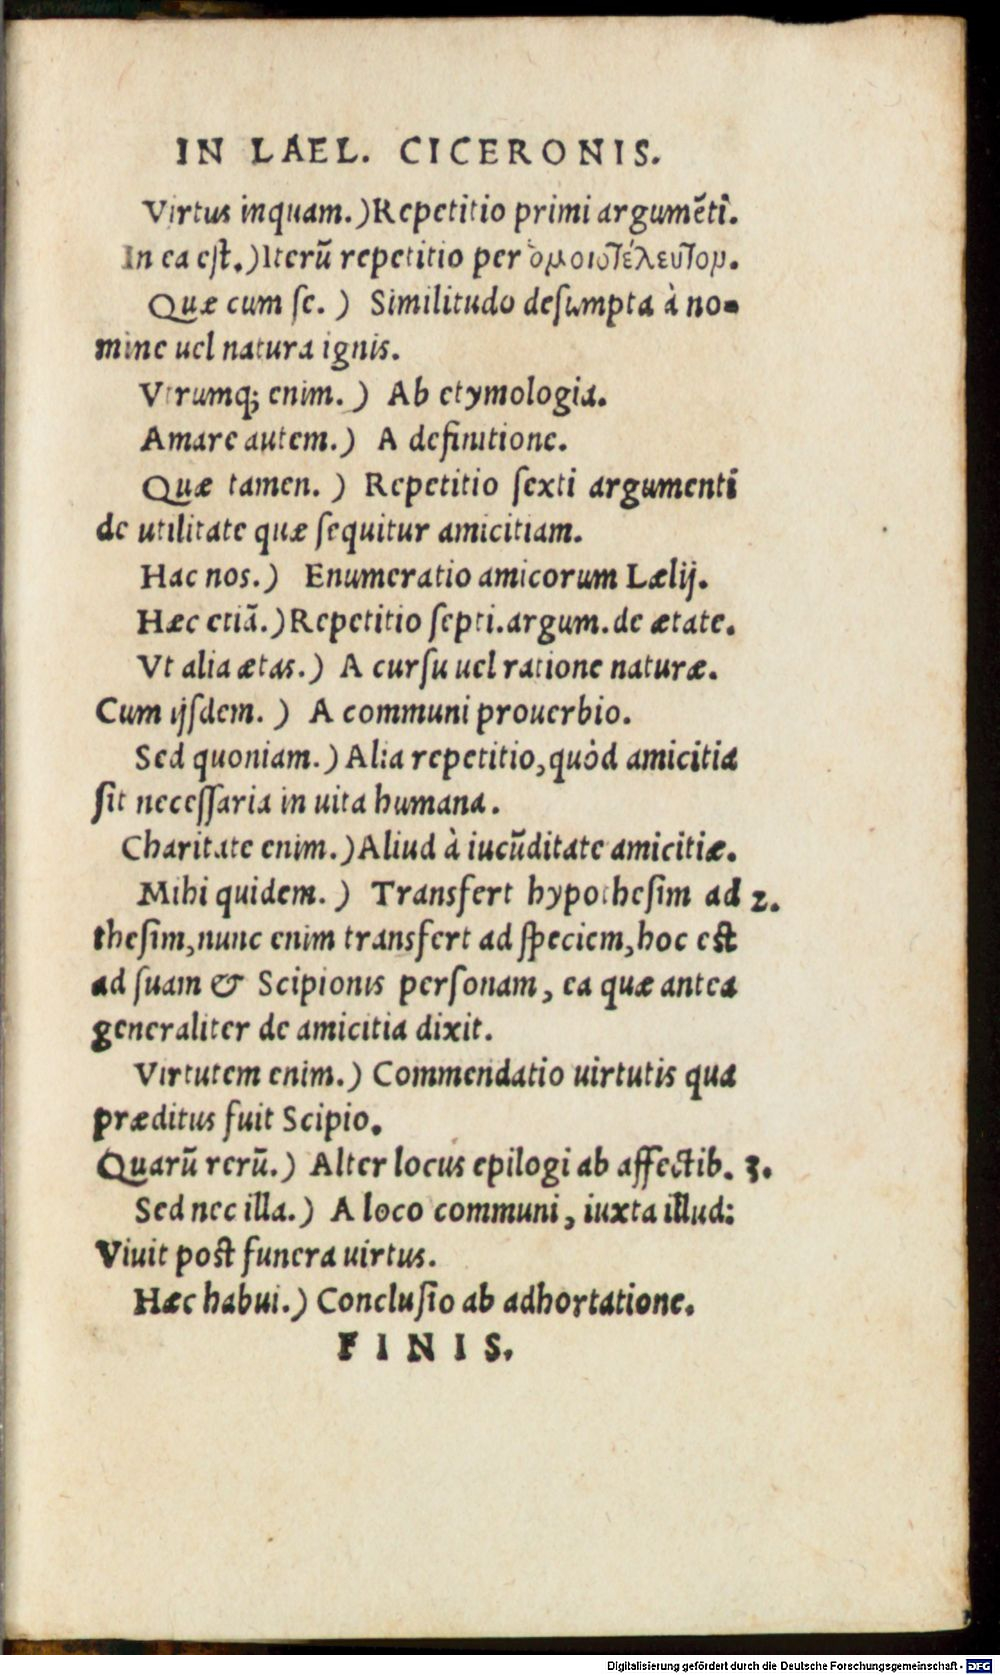 IN LAEL. CICERONIS.
Virtus inquam.) Repetitio primi argumēti.
In ea eſt.) Iterū repetitio per ὁμοιοτέλευτον.
Quæ cum ſe.) Similitudo deſumpta à no-
mine uel natura ignis.
Vtrumq; enim.) Ab etymologia.
Amare autem.) A definitione.
Quæ tamen.) Repetitio ſexti argumenti
de utilitate quæ ſequitur amicitiam.
Hac nos.) Enumeratio amicorum Lælij.
Hæc etiā.) Repetitio ſepti. argum. de ætate.
Vt alia ætas.) A curſu uel ratione naturæ.
Cum ijſdem.) A communi prouerbio.
Sed quoniam.) Alia repetitio, quòd amicitia
ſit neceſſaria in uita humana.
Charitate enim.) Aliud à iucūditate amicitiæ.
Mihi quidem.) Transfert hypotheſim ad 2.
theſim, nunc enim transfert ad ſpeciem, hoc eſt
ad ſuam & Scipionis perſonam, ea quæ antea
generaliter de amicitia dixit.
Virtutem enim.) Commendatio uirtutis qua
præditus fuit Scipio.
Quarū rerū.) Alter locus epilogi ab affectib. 3.
Sed nec illa.) A loco communi, iuxta illud:
Viuit poſt funera uirtus.
Hæc habui.) Concluſio ab adhortatione.
FINIS.
Digitalisierung gefördert durch die Deutsche Forschungsgemeinschaft - DFG